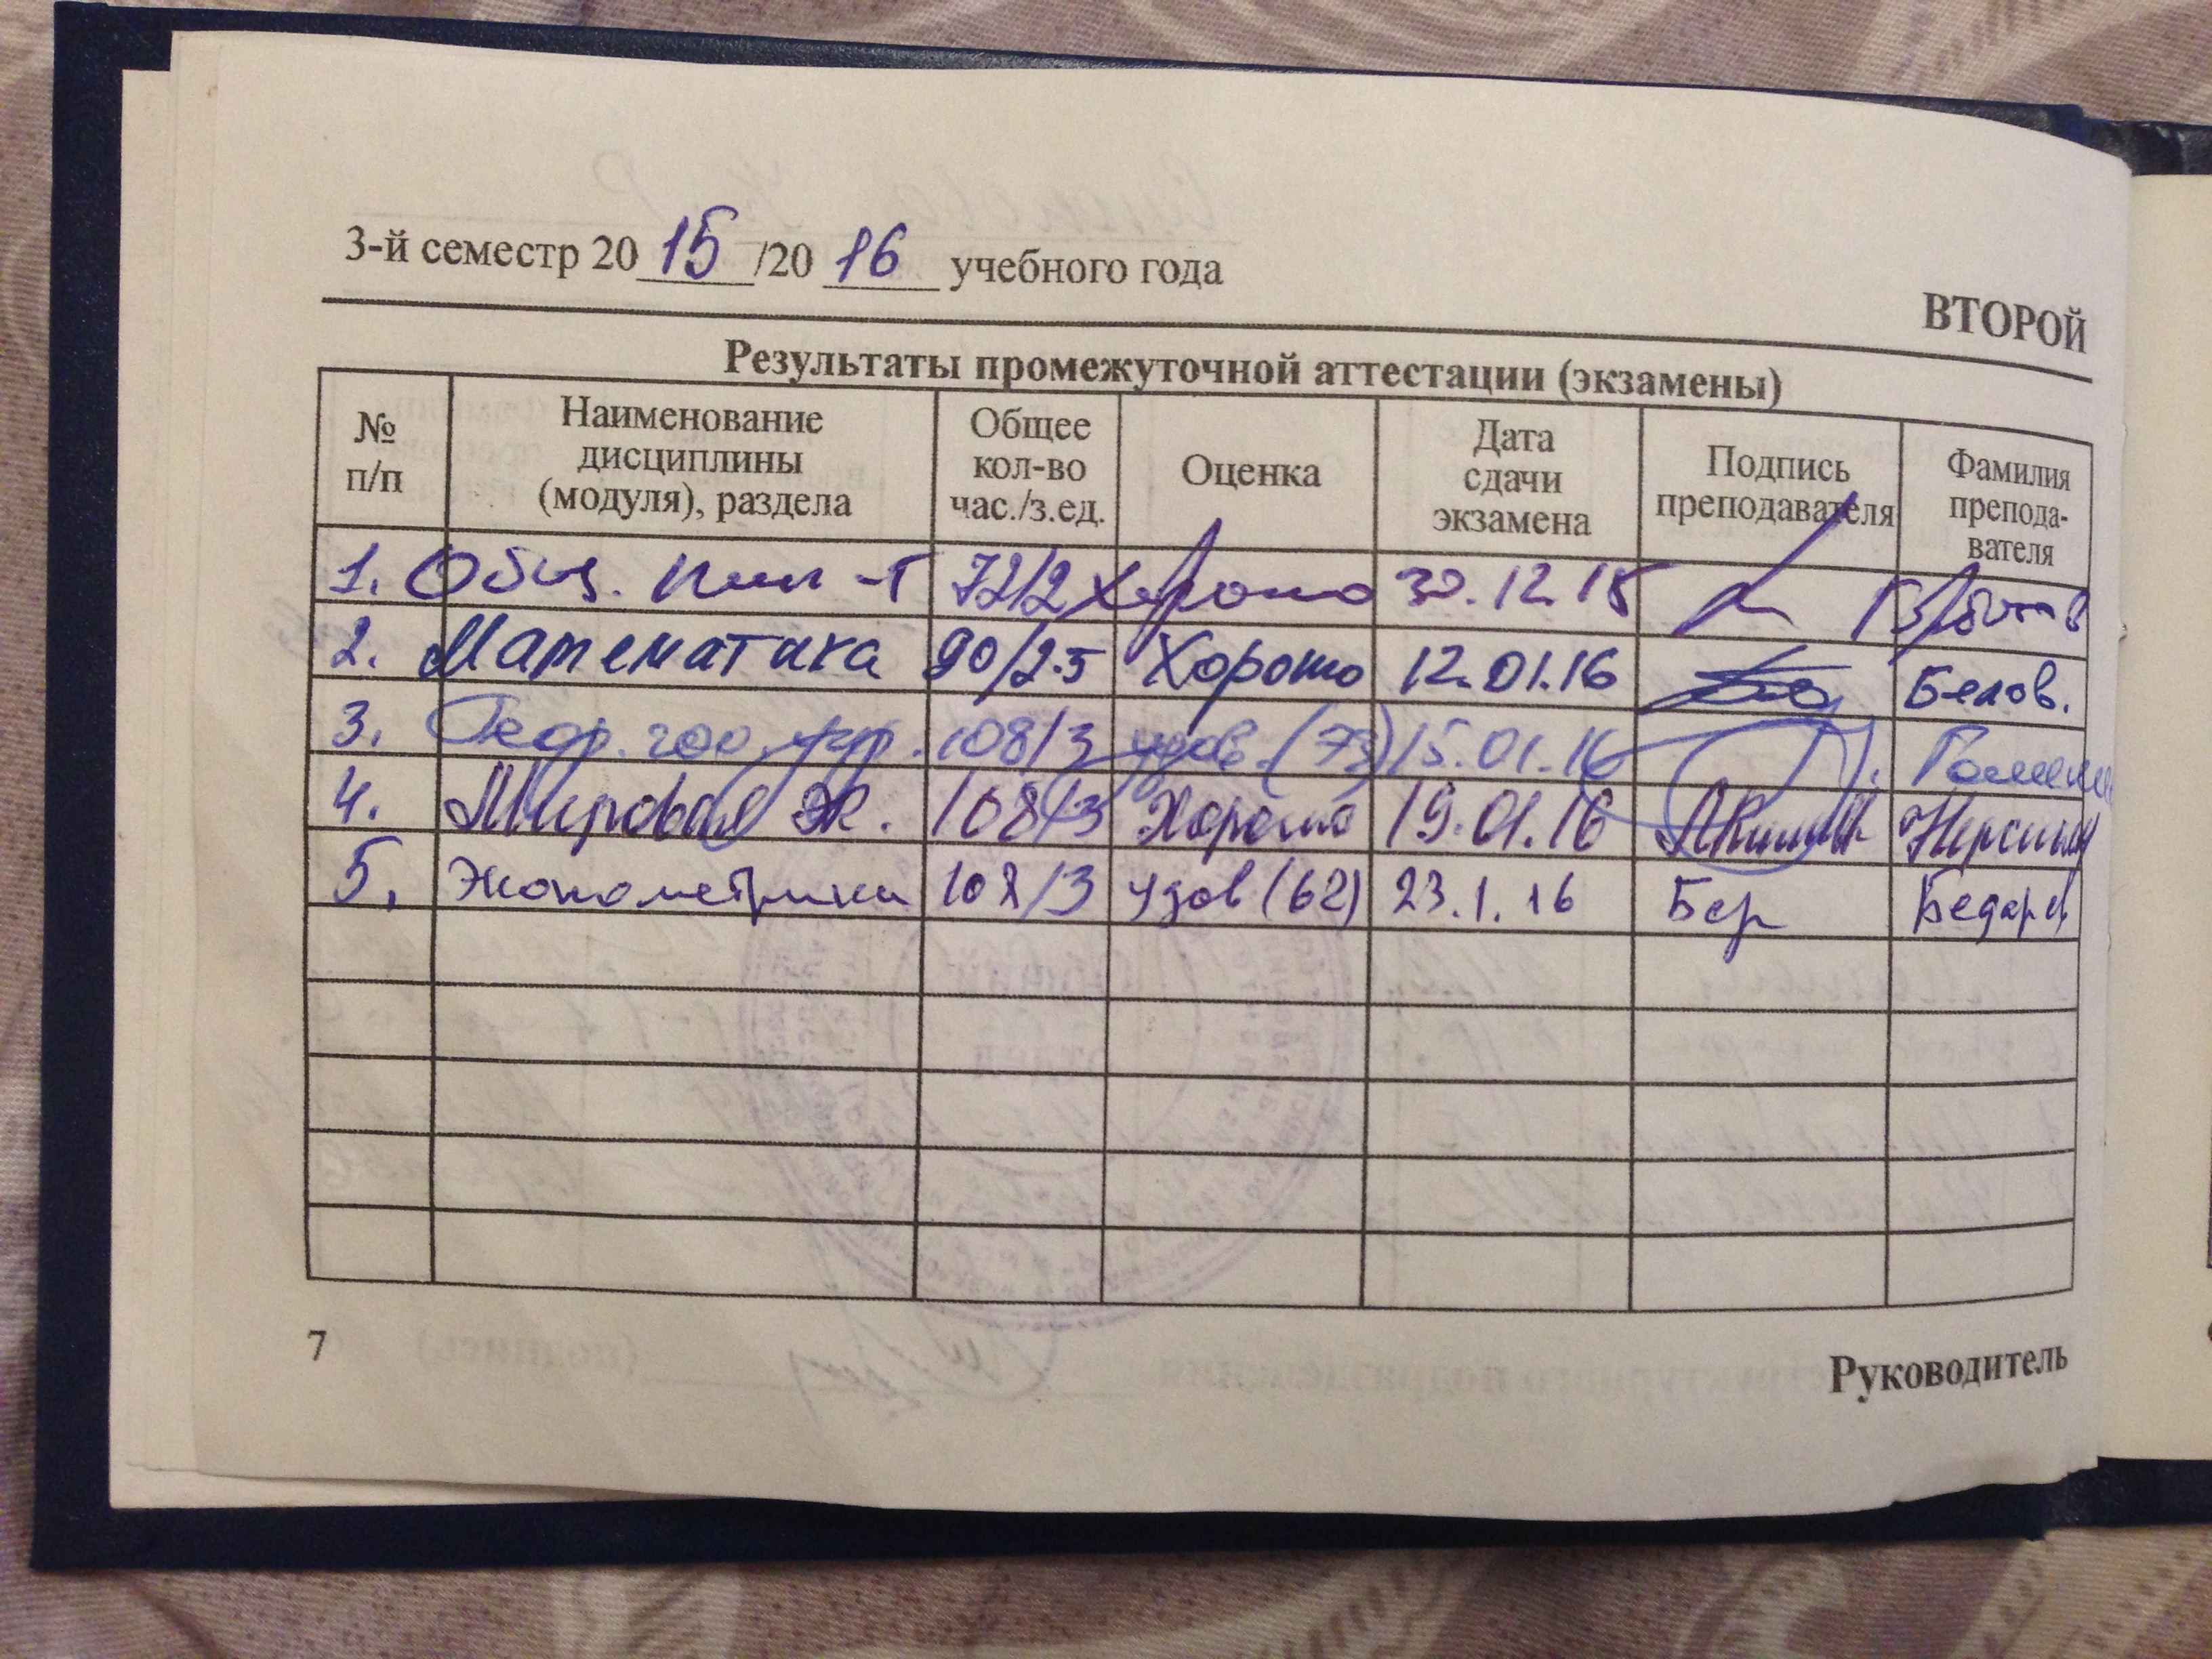 3-й семестр 2015/2016 учебного года
ВТОРОЙ
Результаты промежуточной аттестации (экзамены)
№ п/п Наименование дисциплины (модуля), раздела Общее кол-во час./з.ед. Оценка Дата сдачи экзамена Подпись преподавателя Фамилия препода-вателя
1. 72/2 Хорошо 30.12.15
2. Математика 90/2.5 Хорошо 12.01.16 Белов.
3. 108/3 удов. (73) 15.01.16
4. Мировая эк. 108/3 Хорошо 19.01.16
5. Эконометрика 108/3 удов (62) 23.1.16
7
Руководитель